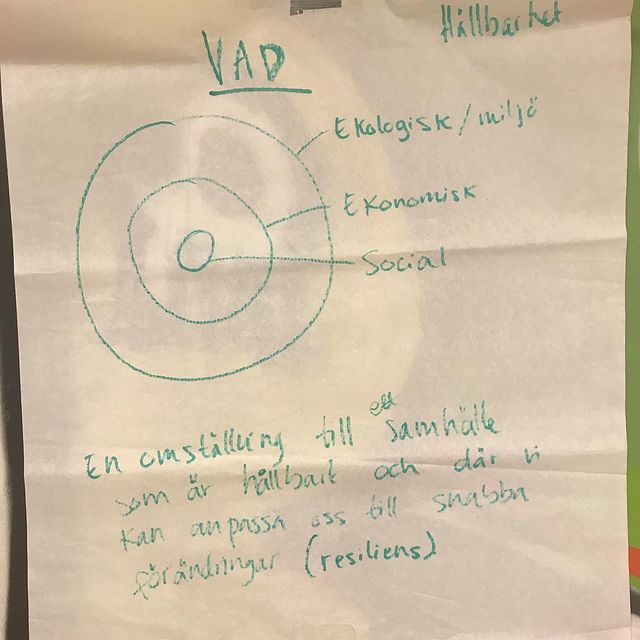 Hållbarhet
VAD
Ekologisk/miljö
Ekonomisk
Social
En omställning till ett samhälle
som är hållbart och där vi
kan anpassa oss till snabba
förändringar (resiliens)